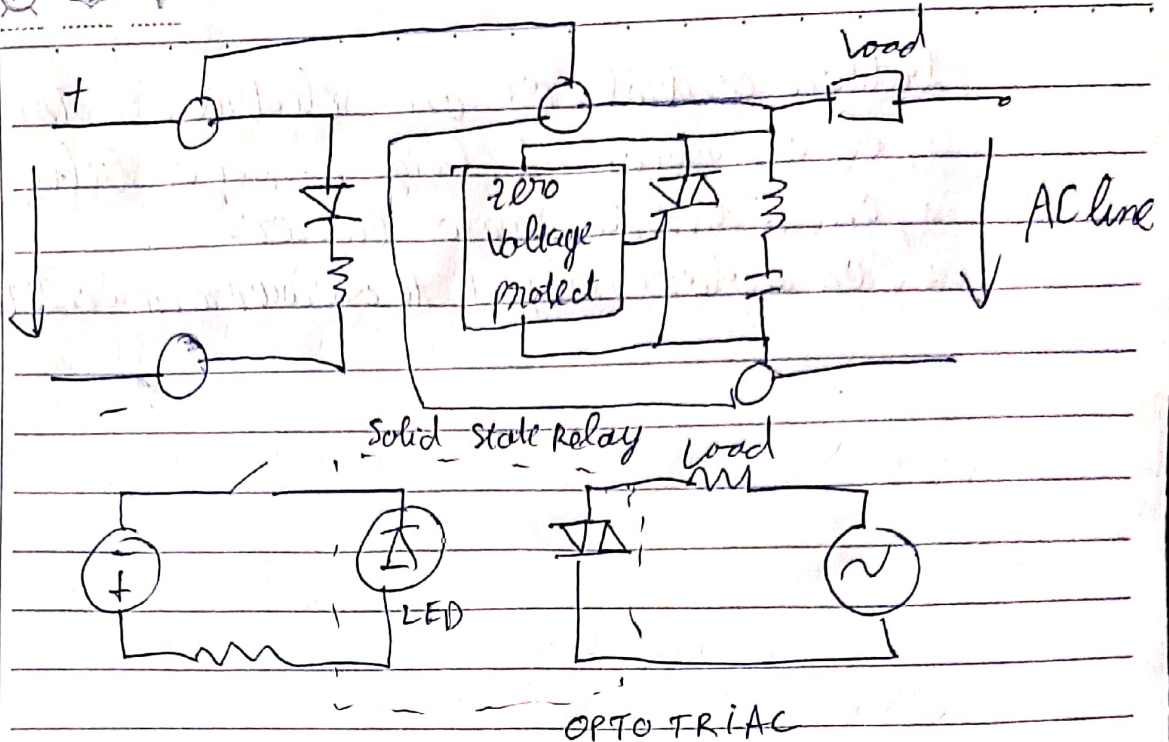 Load
+
zero
voltage
protect
AC line
-
Solid State Relay
Load
-
+
LED
OPTO TRIAC